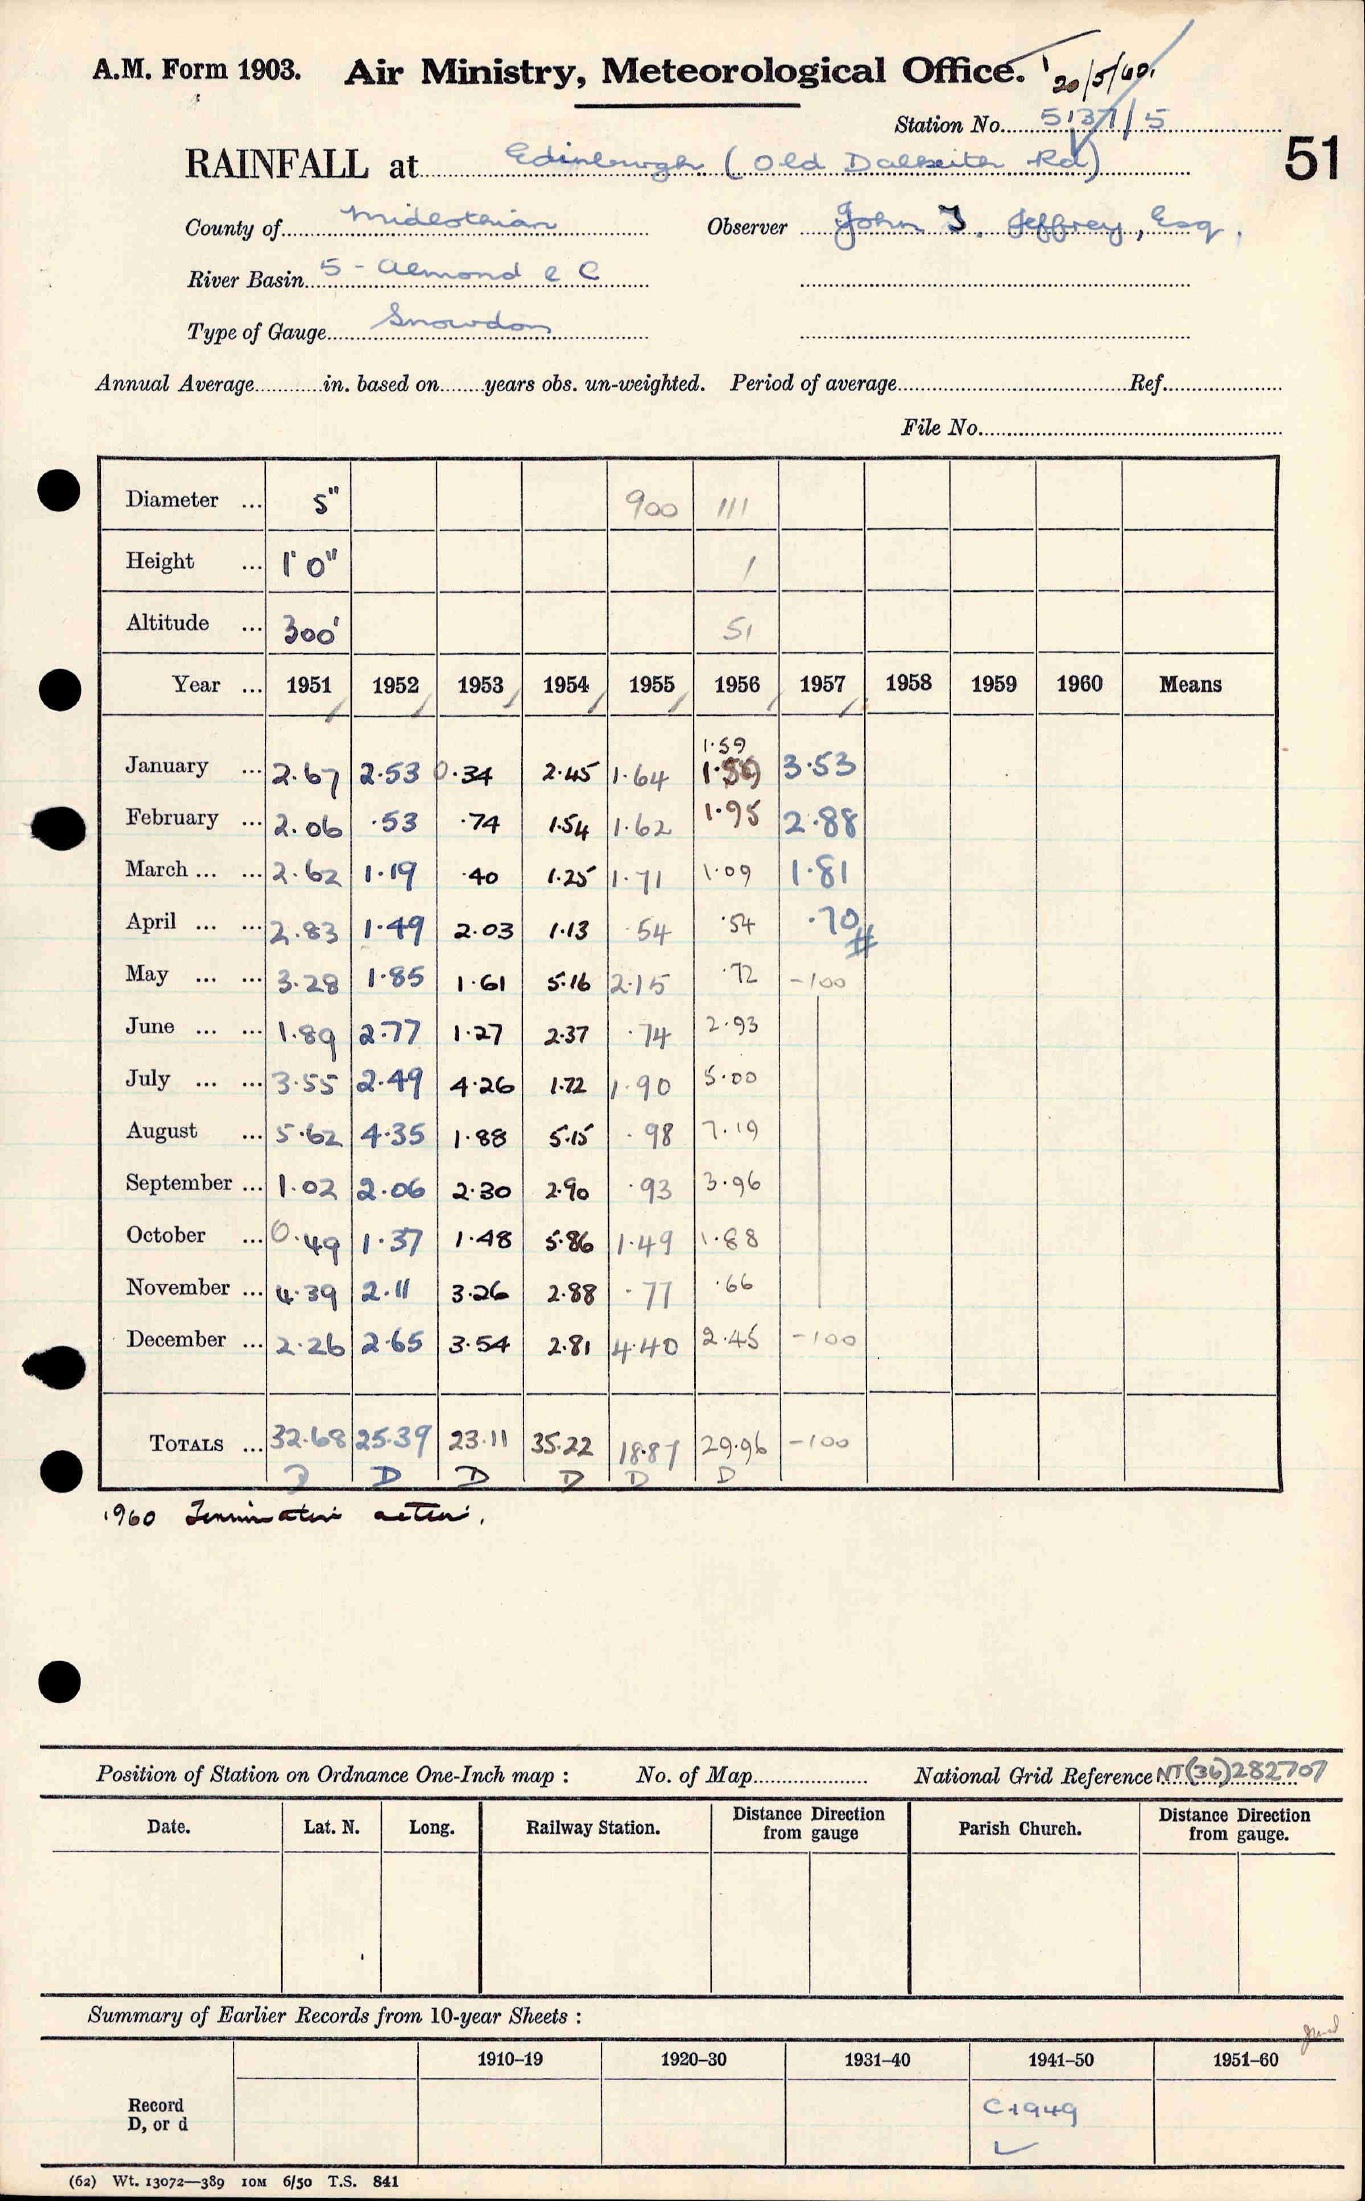 A.M. Form 1903. Air Ministry, Meteorological Office. 20/5/60.
Station No. 5137/5
RAINFALL at Edinburgh (Old Dalkeith Rd) 51
County of Midlothian Observer John J. Jeffrey, Esq.
River Basin 5 - Almond & C
Type of Gauge Snowdon
Annual Average in. based on years obs. un-weighted. Period of average Ref.
File No.
Diameter ... 5" 900 111
Height ... 1' 0" 1
Altitude ... 300' 51
Year ... 1951 1952 1953 1954 1955 1956 1957 1958 1959 1960 Means
1.59
January ... 2.67 2.53 0.34 2.45 1.64 3.53
February ... 2.06 .53 .74 1.54 1.62 1.95 2.88
March ... ... 2.62 1.19 .40 1.25 1.71 1.09 1.81
April ... ... 2.83 1.49 2.03 1.13 .54 .54 .70 #
May ... ... 3.28 1.85 1.61 5.16 2.15 .72 -100
June ... ... 1.89 2.77 1.27 2.37 .74 2.93
July ... ... 3.55 2.49 4.26 1.72 1.90 5.00
August ... 5.62 4.35 1.88 5.15 .98 7.19
September ... 1.02 2.06 2.30 2.90 .93 3.96
October ... 0.49 1.37 1.48 5.86 1.49 1.88
November ... 4.39 2.11 3.26 2.88 .77 .66
December ... 2.26 2.65 3.54 2.81 4.40 2.45 -100
TOTALS ... 32.68 25.39 23.11 35.22 18.87 29.96 -100
D D D D D D
1960
Position of Station on Ordnance One-Inch map : No. of Map National Grid Reference NT(36)282707
Date. Lat. N. Long. Railway Station. Distance Direction from gauge Parish Church. Distance Direction from gauge.
Summary of Earlier Records from 10-year Sheets :
1910–19 1920–30 1931–40 1941–50 1951–60
Record
D, or d
C1949
(62) Wt. 13072—389 10M 6/50 T.S. 841